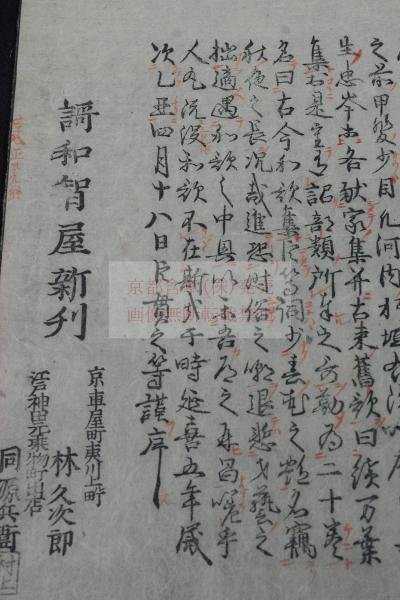 之前甲斐少目凡河内躬恒右
生忠岑等各献家集并古来舊歌曰続万葉
集於是重有詔部類所奉之歌勒為二十巻
名曰古今和歌集臣等詞少春花之艶名竊
秋夜之長況哉進恐時俗之嘲退慙才藝之
拙適遇和歌之中興以楽吾道之再昌嗟乎
人丸既没和歌不在斯哉于時延喜五年歳
次乙丑四月十八日臣貫之等謹序
謌和智屋新刋
京車屋町夷川上町
林久次郎
江戸神田乗物町出店
同源兵衛
村上
画像無断転載禁止